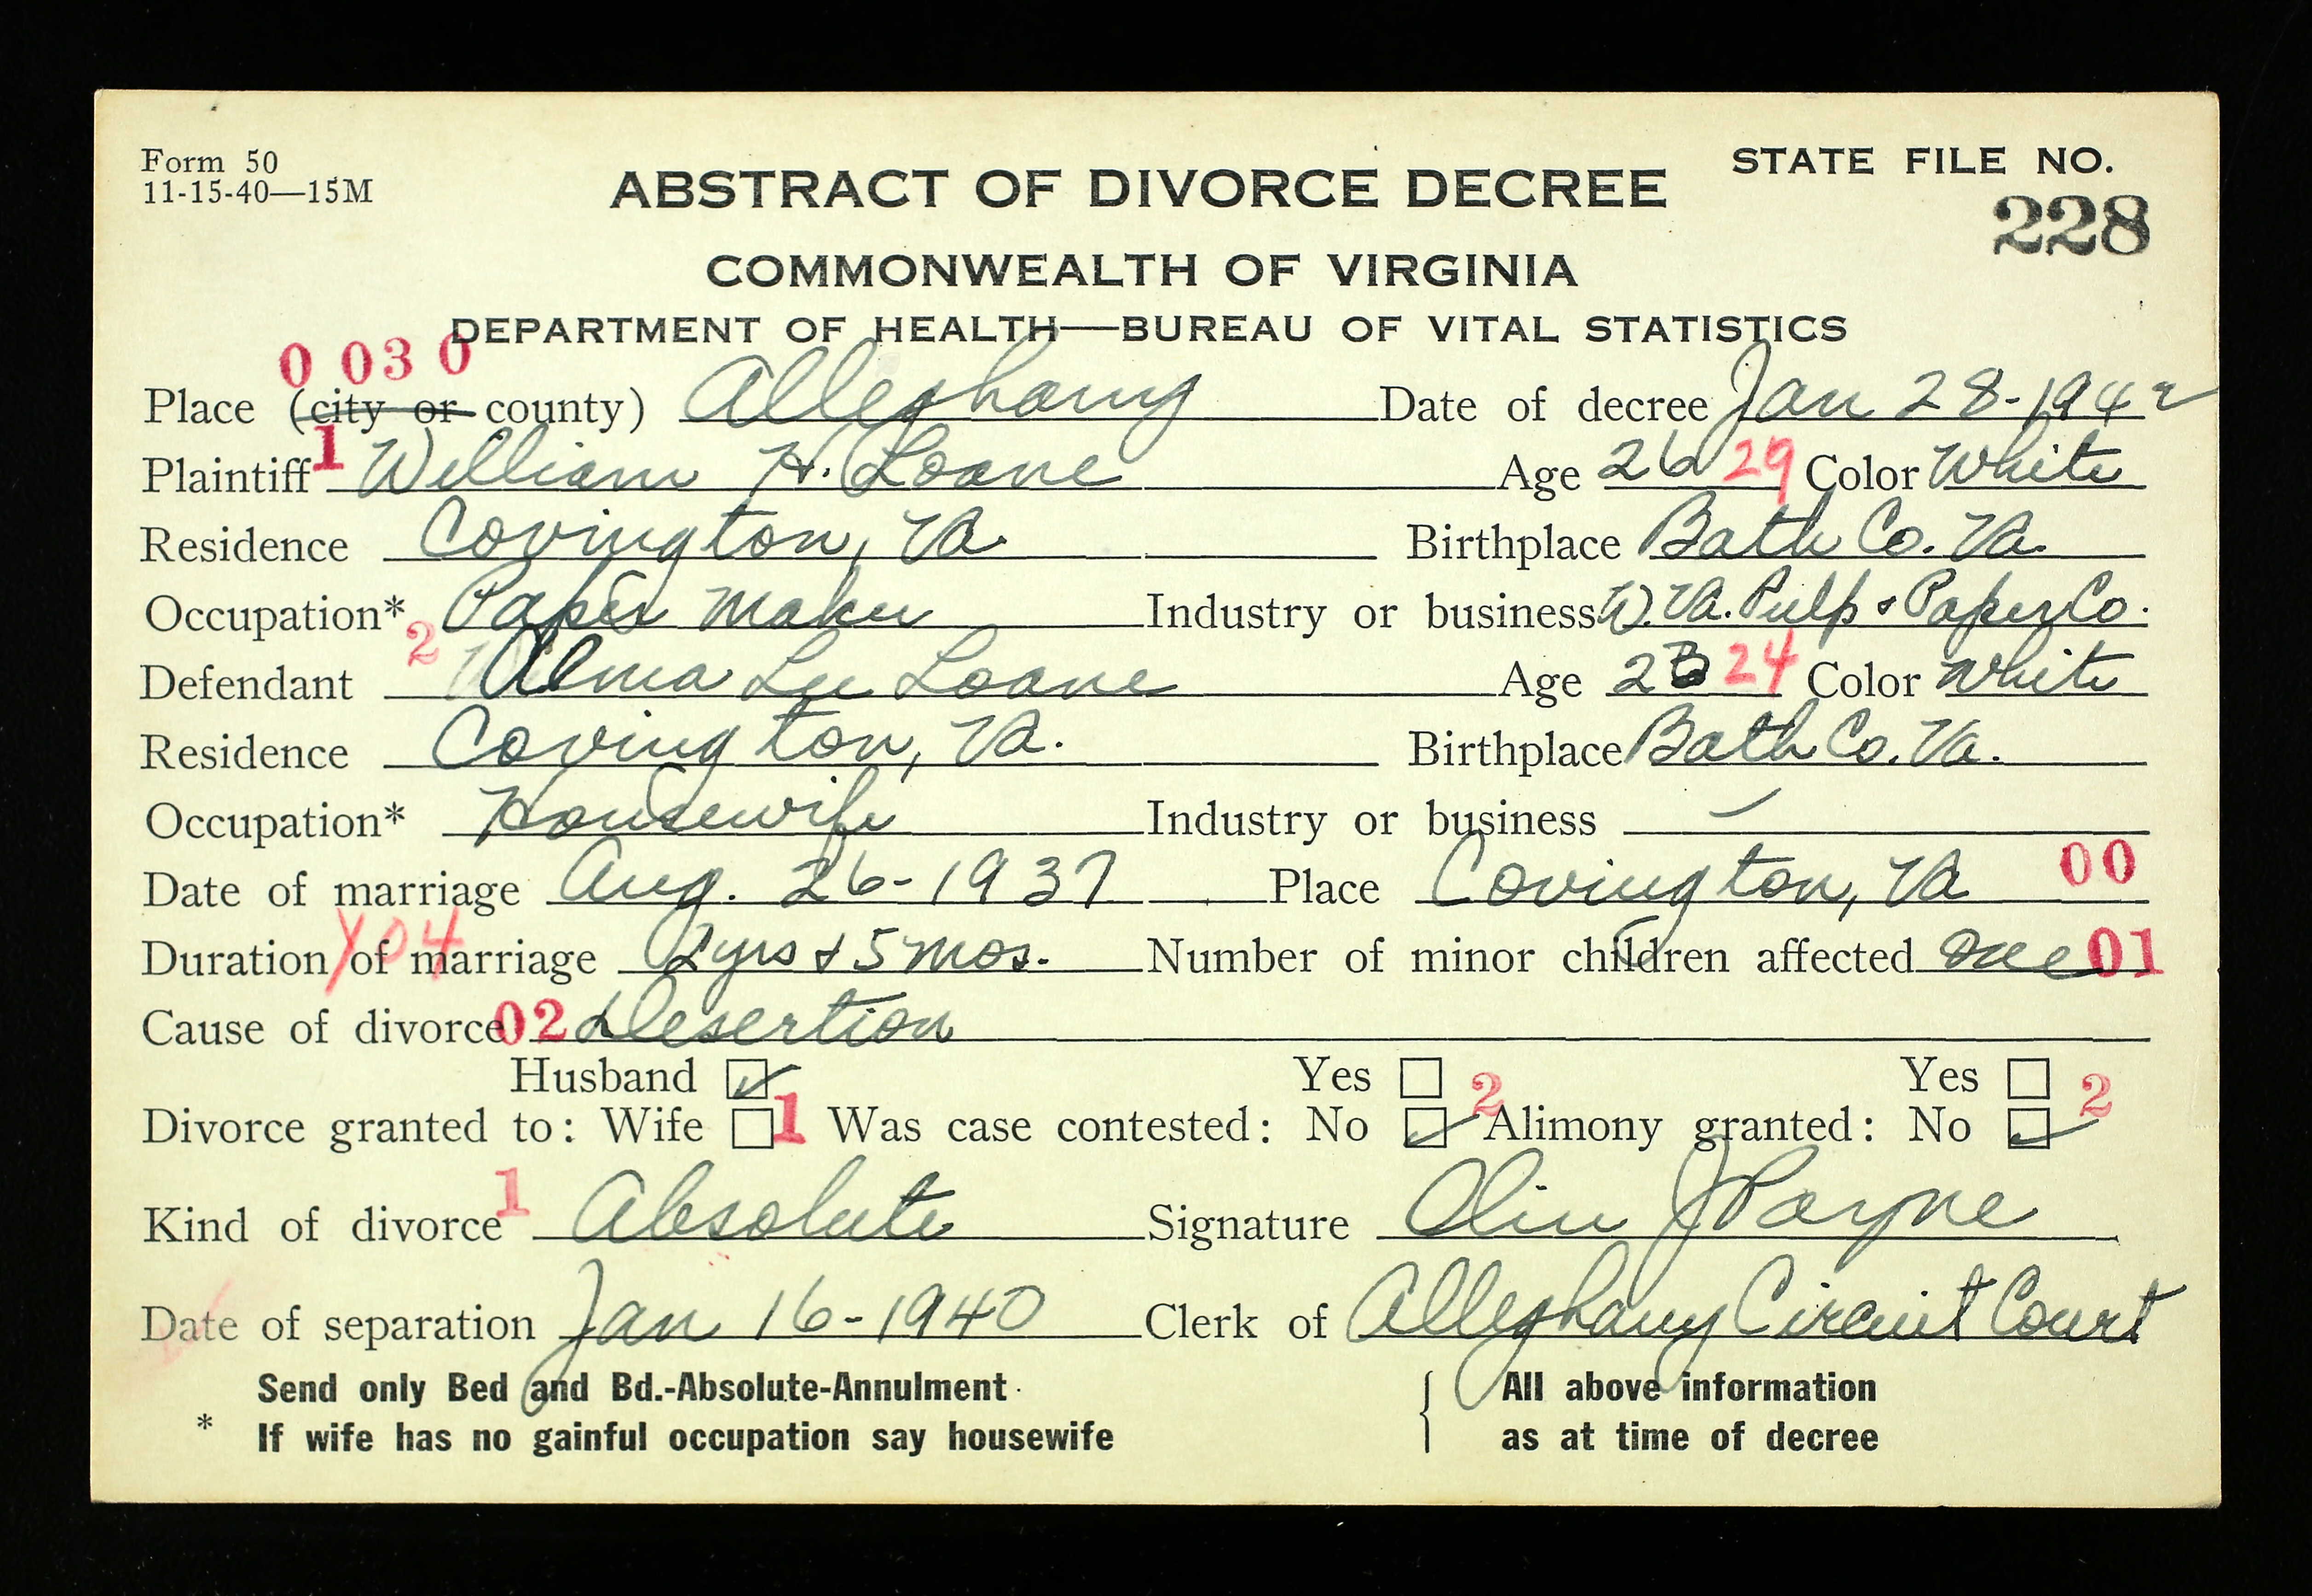 Form 50
11-15-40—15M
STATE FILE NO.
228
ABSTRACT OF DIVORCE DECREE
COMMONWEALTH OF VIRGINIA
DEPARTMENT OF HEALTH—BUREAU OF VITAL STATISTICS
0 03 0
Place (city or county) Alleghany Date of decree Jan 28-1942
Plaintiff 1 William H. Loane Age 26 29 Color White
Residence Covington, Va. Birthplace Bath Co. Va.
Occupation* Paper Maker Industry or business W. Va. Pulp & Paper Co.
Defendant 2 Alma Lee Loane Age 24 Color White
Residence Covington, Va. Birthplace Bath Co. Va.
Occupation* Housewife Industry or business —
Date of marriage Aug. 26-1937 Place Covington, Va 00
Duration of marriage Y04 2 yrs & 5 mos. Number of minor children affected One 01
Cause of divorce 02 Desertion
Husband ☑ Yes ☐ Yes ☐
Divorce granted to: Wife ☐ 1 Was case contested: No ☑ 2 Alimony granted: No ☑ 2
Kind of divorce 1 Absolute Signature Olin J Payne
Date of separation Jan 16-1940 Clerk of Alleghany Circuit Court
Send only Bed and Bd.-Absolute-Annulment
* If wife has no gainful occupation say housewife
{ All above information
as at time of decree